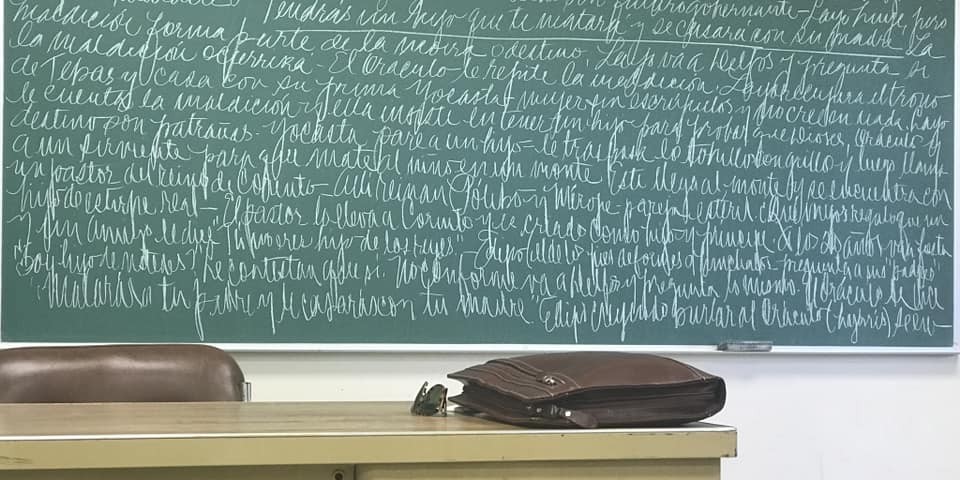 Tendrás un hijo que te matará y se casará con su madre La
maldición forma parte de la moira o destino. Layo va a Delfos y pregunta si
la maldición es cierta - El Oráculo le repite la maldición. Layo el trono
de Tebas y casa con su prima Yocasta - mujer sin escrúpulos y no cree en nada. Layo
le cuenta la maldición y ella insiste en tener un hijo para probar que Dioses, Oráculo y
destino son patrañas. Yocasta pare a un hijo - le traspasa los tobillos con grillo y luego llama
a un sirviente para que mate al niño en un monte. Este llega al monte y se encuentra con
un pastor del reino de Corinto - Allí reinan Pólibo y Mérope - pareja estéril
hijo de estirpe real - El pastor lo lleva a Corinto y es criado como hijo y príncipe. A los años
y un amigo le dice "Tú no eres hijo de los reyes" Edipo pregunta a sus padres
"Soy hijo de ustedes? Le contestan que sí. No conforme va a Delfos y pregunta lo mismo. El Oráculo le dice
"Matarás a tu padre y te casarás con tu madre" Edipo creyendo burlar al Oráculo